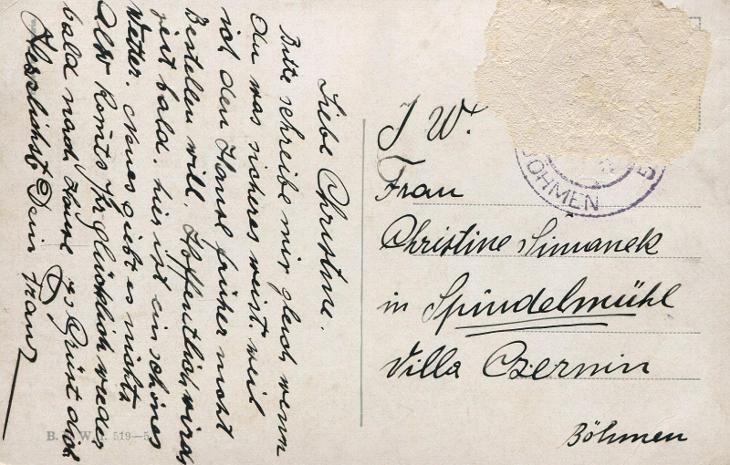 Liebe Christine.
Bitte schreibe mir gleich wenn
du was sicheres weist. weil
ich den Hansl früher nicht
Bestellen will. Hoffentlich wirds
zeit bald. hier ist ein schönes
Wetter. Neues giebt es nichts
Also komts Ihr glücklich wieder
bald nach Hause. Es Grüst dich
Herzlichst Dein Franz
J W.
Frau
Christine Simanek
in Spindelmühl
Villa Czernin
Böhmen
BÖHMEN
B. W. 519-5